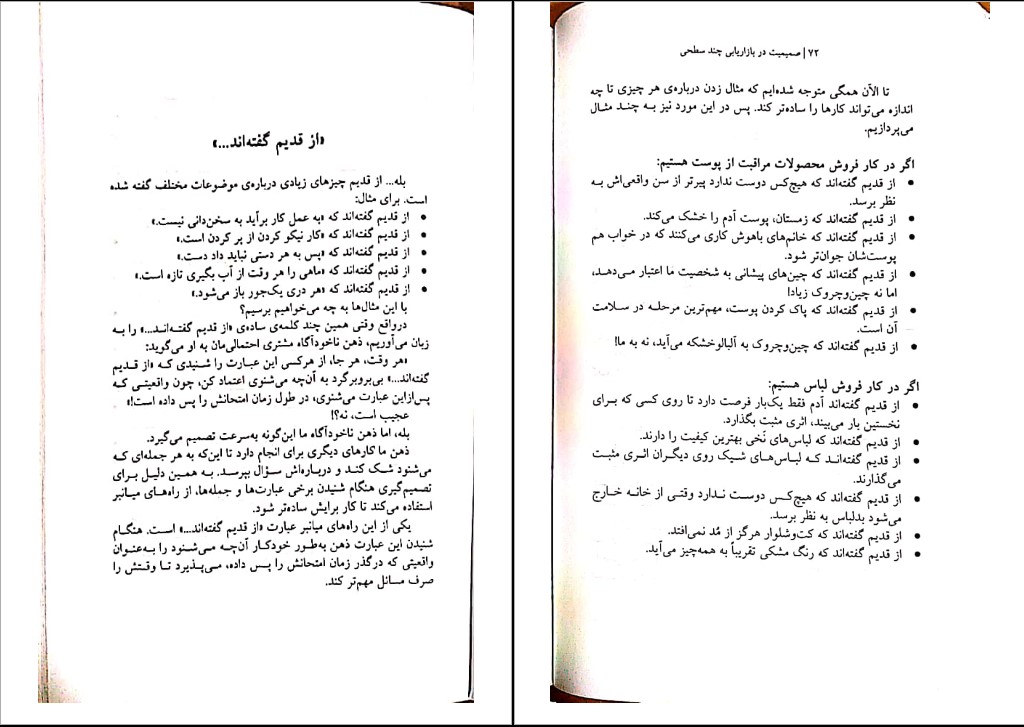 «از قدیم گفته‌اند...»
بله... از قدیم چیزهای زیادی درباره‌ی موضوعات مختلف گفته شده
است. برای مثال:
• از قدیم گفته‌اند که «به عمل کار برآید به سخن‌دانی نیست.»
• از قدیم گفته‌اند که «کار نیکو کردن از پر کردن است.»
• از قدیم گفته‌اند که «پس به هر دستی نباید داد دست.»
• از قدیم گفته‌اند که «ماهی را هر وقت از آب بگیری تازه است.»
• از قدیم گفته‌اند که «هر دری یک‌جور باز می‌شود.»
با این مثال‌ها به چه می‌خواهیم برسیم؟
درواقع وقتی همین چند کلمه‌ی ساده‌ی «از قدیم گفته‌اند...» را به
زبان می‌آوریم، ذهن ناخودآگاه مشتری احتمالی‌مان به او می‌گوید:
«هر وقت، هر جا، از هرکسی این عبارت را شنیدی که «از قدیم
گفته‌اند...» بی‌بروبرگرد به آن‌چه می‌شنوی اعتماد کن، چون واقعیتی که
پس‌ازاین عبارت می‌شنوی، در طول زمان امتحانش را پس داده است!»
عجیب است، نه؟!
بله، اما ذهن ناخودآگاه ما این‌گونه به‌سرعت تصمیم می‌گیرد.
ذهن ما کارهای دیگری برای انجام دارد تا این‌که به هر جمله‌ای که
می‌شنود شک کند و درباره‌اش سؤال بپرسد. به همین دلیل برای
تصمیم‌گیری هنگام شنیدن برخی عبارت‌ها و جمله‌ها، از راه‌های میانبر
استفاده می‌کند تا کار برایش ساده‌تر شود.
یکی از این راه‌های میانبر عبارت «از قدیم گفته‌اند...» است. هنگام
شنیدن این عبارت ذهن به‌طور خودکار آن‌چه می‌شنود را به‌عنوان
واقعیتی که درگذر زمان امتحانش را پس داده، می‌پذیرد تا وقتش را
صرف مسائل مهم‌تر کند.
۷۲ | صمیمیت در بازاریابی چند سطحی
تا الآن همگی متوجه شده‌ایم که مثال زدن درباره‌ی هر چیزی تا چه
اندازه می‌تواند کارها را ساده‌تر کند. پس در این مورد نیز به چند مثال
می‌پردازیم.
اگر در کار فروش محصولات مراقبت از پوست هستیم:
• از قدیم گفته‌اند که هیچ‌کس دوست ندارد پیرتر از سن واقعی‌اش به
نظر برسد.
• از قدیم گفته‌اند که زمستان، پوست آدم را خشک می‌کند.
• از قدیم گفته‌اند که خانم‌های باهوش کاری می‌کنند که در خواب هم
پوستشان جوان‌تر شود.
• از قدیم گفته‌اند که چین‌های پیشانی به شخصیت ما اعتبار می‌دهد،
اما نه چین‌وچروک زیاد!
• از قدیم گفته‌اند که پاک کردن پوست، مهم‌ترین مرحله در سلامت
آن است.
• از قدیم گفته‌اند که چین‌وچروک به آلبالوخشکه می‌آید، نه به ما!
اگر در کار فروش لباس هستیم:
• از قدیم گفته‌اند آدم فقط یک‌بار فرصت دارد تا روی کسی که برای
نخستین بار می‌بیند، اثری مثبت بگذارد.
• از قدیم گفته‌اند که لباس‌های نَخی بهترین کیفیت را دارند.
• از قدیم گفته‌اند که لباس‌های شیک روی دیگران اثری مثبت
می‌گذارند.
• از قدیم گفته‌اند که هیچ‌کس دوست ندارد وقتی از خانه خارج
می‌شود بدلباس به نظر برسد.
• از قدیم گفته‌اند که کت‌وشلوار هرگز از مُد نمی‌افتد.
• از قدیم گفته‌اند که رنگ مشکی تقریباً به همه‌چیز می‌آید.